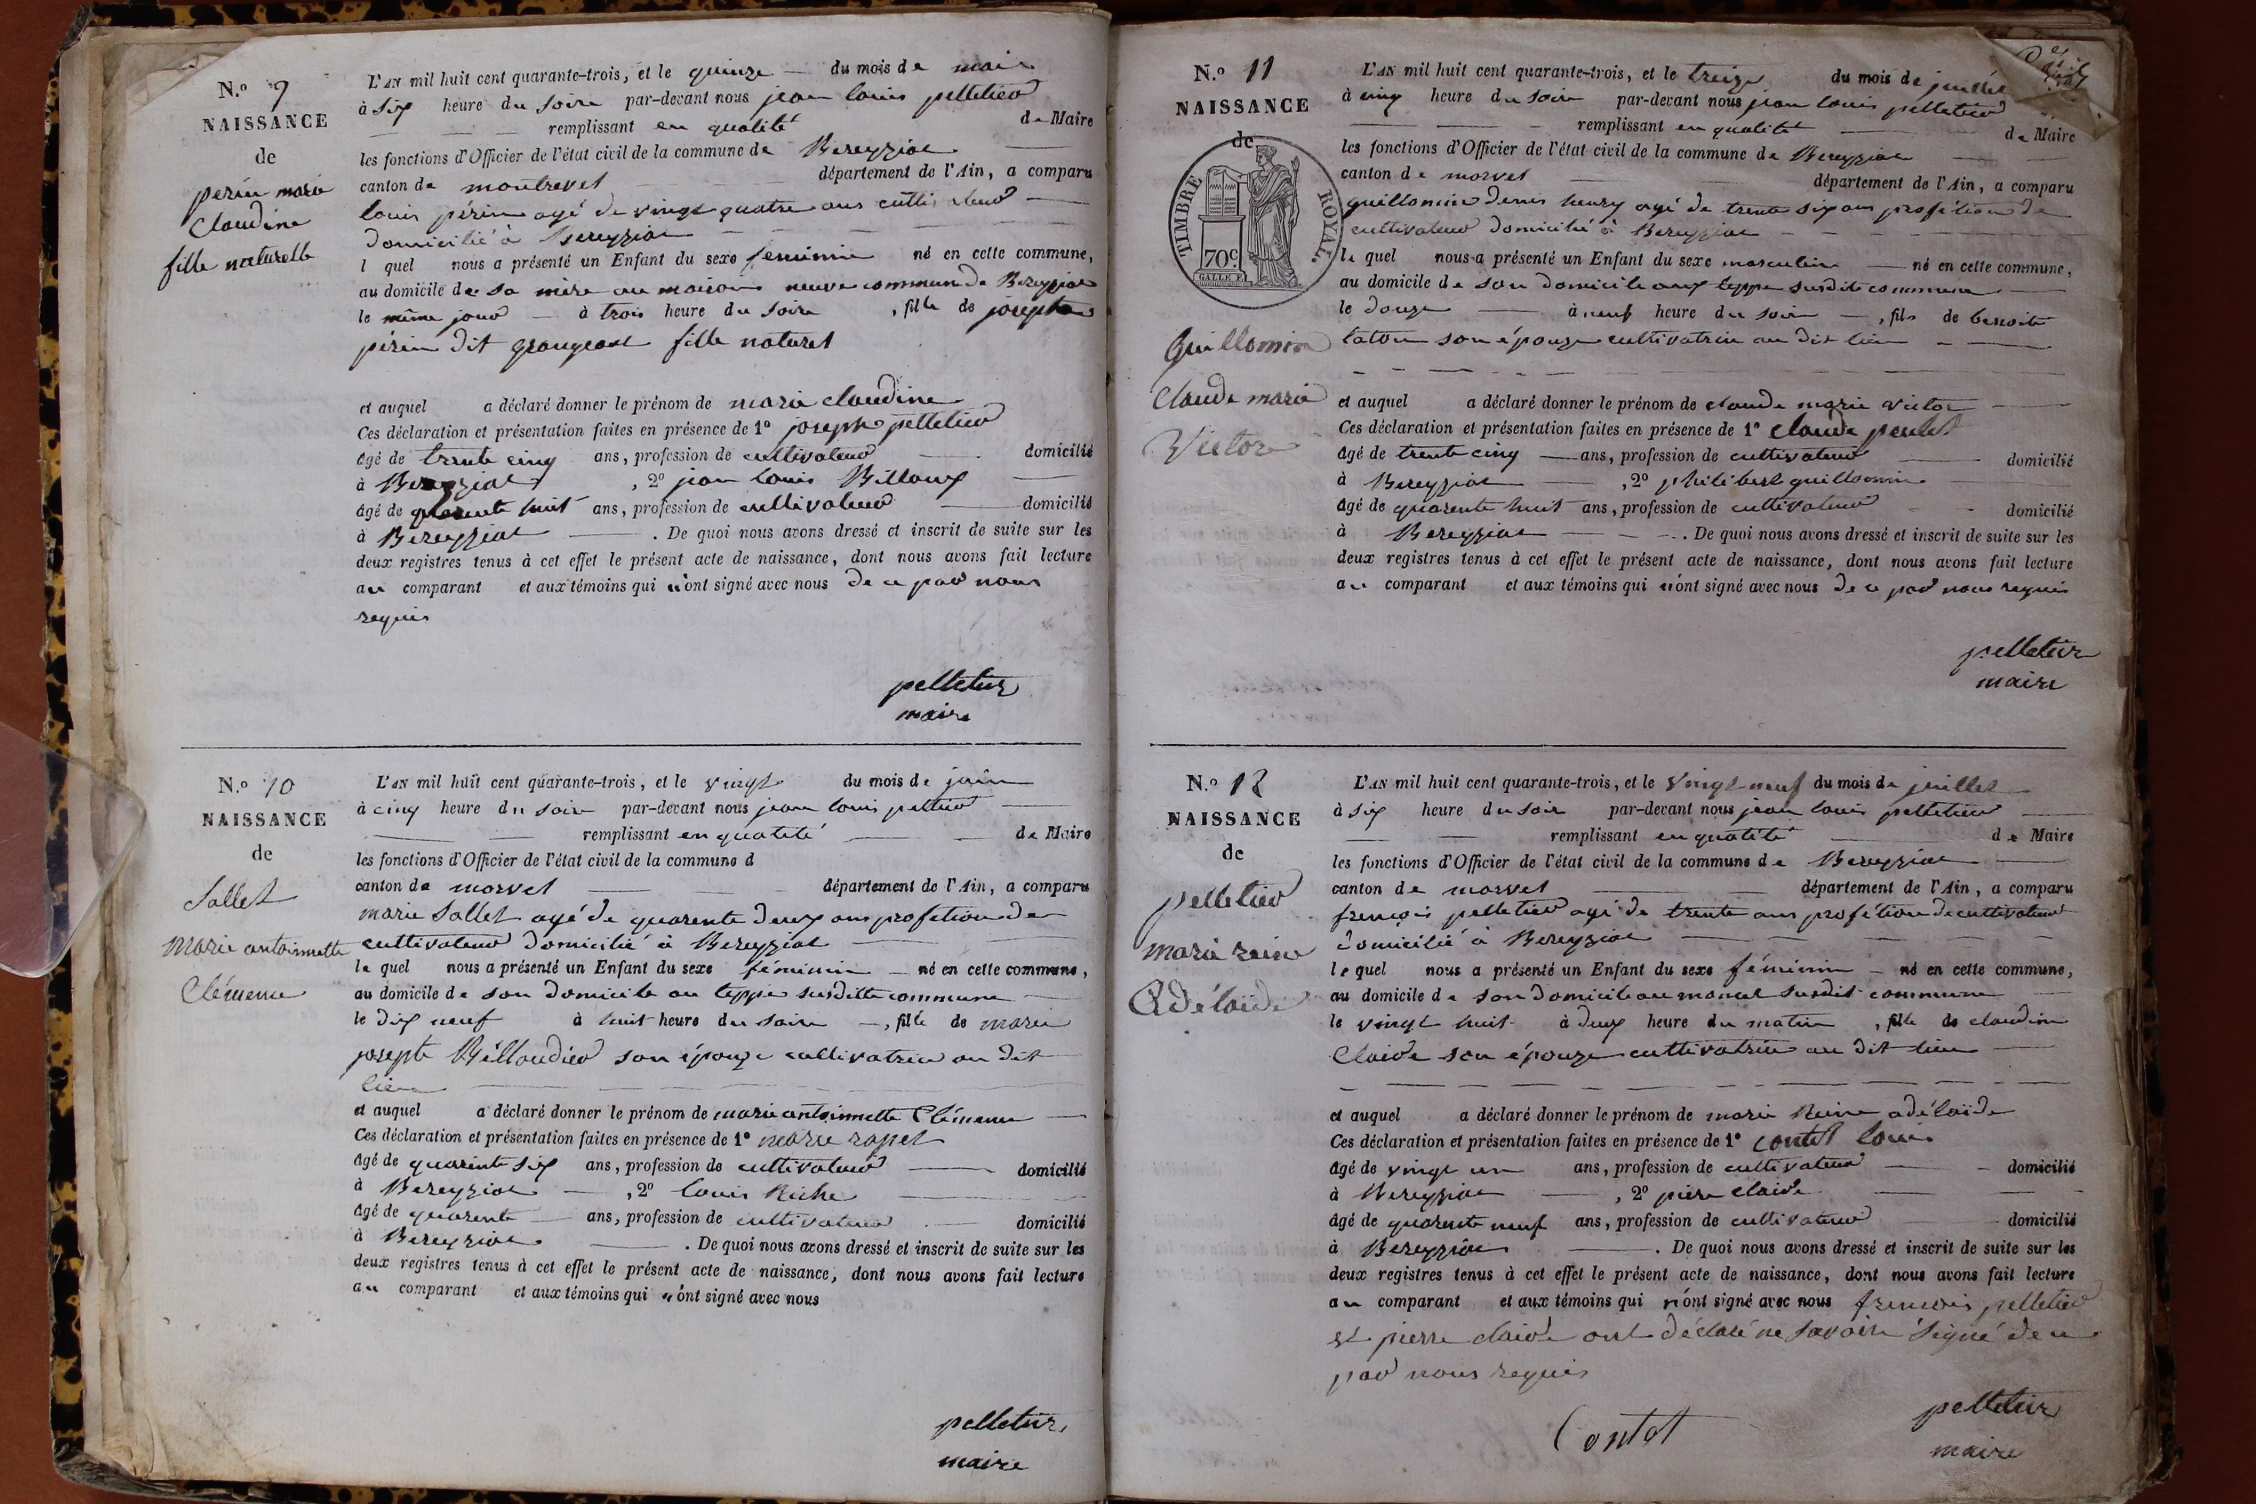 N.º 9
NAISSANCE
de
perin marie
Claudine
fille naturelle
L'AN mil huit cent quarante-trois, et le quinze du mois de mai
à six heure du soire par-devant nous jean louis pelletier
remplissant en qualité de Maire
les fonctions d'Officier de l'état civil de la commune de Bereyziat
canton de montrevel département de l'Ain, a comparu
louis périn agé de vingt quatre ans cultivateur
domicilié à Bereyziat
l quel nous a présenté un Enfant du sexe feminin né en cette commune,
au domicile de sa mère au maison neuve commun de Bereyziat
le même jour à trois heure du soire, fille de josephte
périn dit grangeast fille naturel
et auquel a déclaré donner le prénom de marie claudine
Ces déclaration et présentation faites en présence de 1º joseph pelletier
âgé de trente cinq ans, profession de cultivateur domicilié
à Bereyziat, 2º jean louis Billoux
âgé de quarente huit ans, profession de cultivateur domicilié
à Bereyziat. De quoi nous avons dressé et inscrit de suite sur les
deux registres tenus à cet effet le présent acte de naissance, dont nous avons fait lecture
au comparant et aux témoins qui n'ont signé avec nous de ce par nous
requis
pelletier
maire
N.º 10
NAISSANCE
de
Sallet
Marie antoinnette
Clémence
L'AN mil huit cent quarante-trois, et le vingt du mois de juin
à cinq heure du soir par-devant nous jean louis pelletier
remplissant en quatité de Maire
les fonctions d'Officier de l'état civil de la commune d
canton de morvel département de l'Ain, a comparu
marie Sallet agé de quarente deux ans profetion de
cultivateur domicilié à Bereyziat
le quel nous a présenté un Enfant du sexe féminin né en cette commune,
au domicile de son domicile au teppe susditte commune
le dix neuf à huit heure du soire, fille de marie
josepte Billoudier son épouze cultivatrice au dit
lieu
et auquel a déclaré donner le prénom de marie antoinnette Clémence
Ces déclaration et présentation faites en présence de 1º marie rapet
âgé de quarente six ans, profession de cultivateur domicilié
à Bereyziat, 2º louis Riche
âgé de quarente ans, profession de cultivateur domicilié
à Bereyziat. De quoi nous avons dressé et inscrit de suite sur les
deux registres tenus à cet effet le présent acte de naissance, dont nous avons fait lecture
au comparant et aux témoins qui n'ont signé avec nous
pelletier
maire
N.º 11
NAISSANCE
de
TIMBRE ROYAL.
70c
Guillomin
Claude marie
Victor
L'AN mil huit cent quarante-trois, et le treize du mois de juillet
à cinq heure du soir par-devant nous jean louis pelletier
remplissant en qualité de Maire
les fonctions d'Officier de l'état civil de la commune de Bereyziat
canton de morvel département de l'Ain, a comparu
guillomin denis henry agé de trente six ans profétion de
cultivateur domicilié à Bereyziat
le quel nous a présenté un Enfant du sexe masculin né en cette commune,
au domicile de son domicile aux teppe susdite commune
le douze à neuf heure du soir, fils de benoite
laton son épouze cultivatrice au dit lieu
et auquel a déclaré donner le prénom de claude marie victor
Ces déclaration et présentation faites en présence de 1º claude
âgé de trente cinq ans, profession de cultivateur domicilié
à Bereyziat, 2º philibert guillomin
âgé de quarente huit ans, profession de cultivateur domicilié
à Bereyziat. De quoi nous avons dressé et inscrit de suite sur les
deux registres tenus à cet effet le présent acte de naissance, dont nous avons fait lecture
au comparant et aux témoins qui n'ont signé avec nous de ce par nous requis
pelletier
maire
N.º 12
NAISSANCE
de
pelletier
marie reine
Adélaïde
L'AN mil huit cent quarante-trois, et le vingt neuf du mois de juillet
à six heure du soir par-devant nous jean louis pelletier
remplissant en quatité de Maire
les fonctions d'Officier de l'état civil de la commune de Bereyziat
canton de morvel département de l'Ain, a comparu
françois pelletier agé de trente ans profétion de cultivateur
domicilié à Bereyziat
le quel nous a présenté un Enfant du sexe féminin né en cette commune,
au domicile de son domicile au mancel susdit commune
le vingt huit à deux heure du matin, fille de claudine
Claide son épouze cultivatrice au dit lieu
et auquel a déclaré donner le prénom de marie Reine adélaïde
Ces déclaration et présentation faites en présence de 1º contet louis
âgé de vingt un ans, profession de cultivateur domicilié
à Bereyziat, 2º piere claide
âgé de quarente neuf ans, profession de cultivateur domicilié
à Bereyziat. De quoi nous avons dressé et inscrit de suite sur les
deux registres tenus à cet effet le présent acte de naissance, dont nous avons fait lecture
au comparant et aux témoins qui n'ont signé avec nous francois pelletier
et pierre claide ont déclaré ne savoir signé de ce
par nous requis
Contet
pelletier
maire